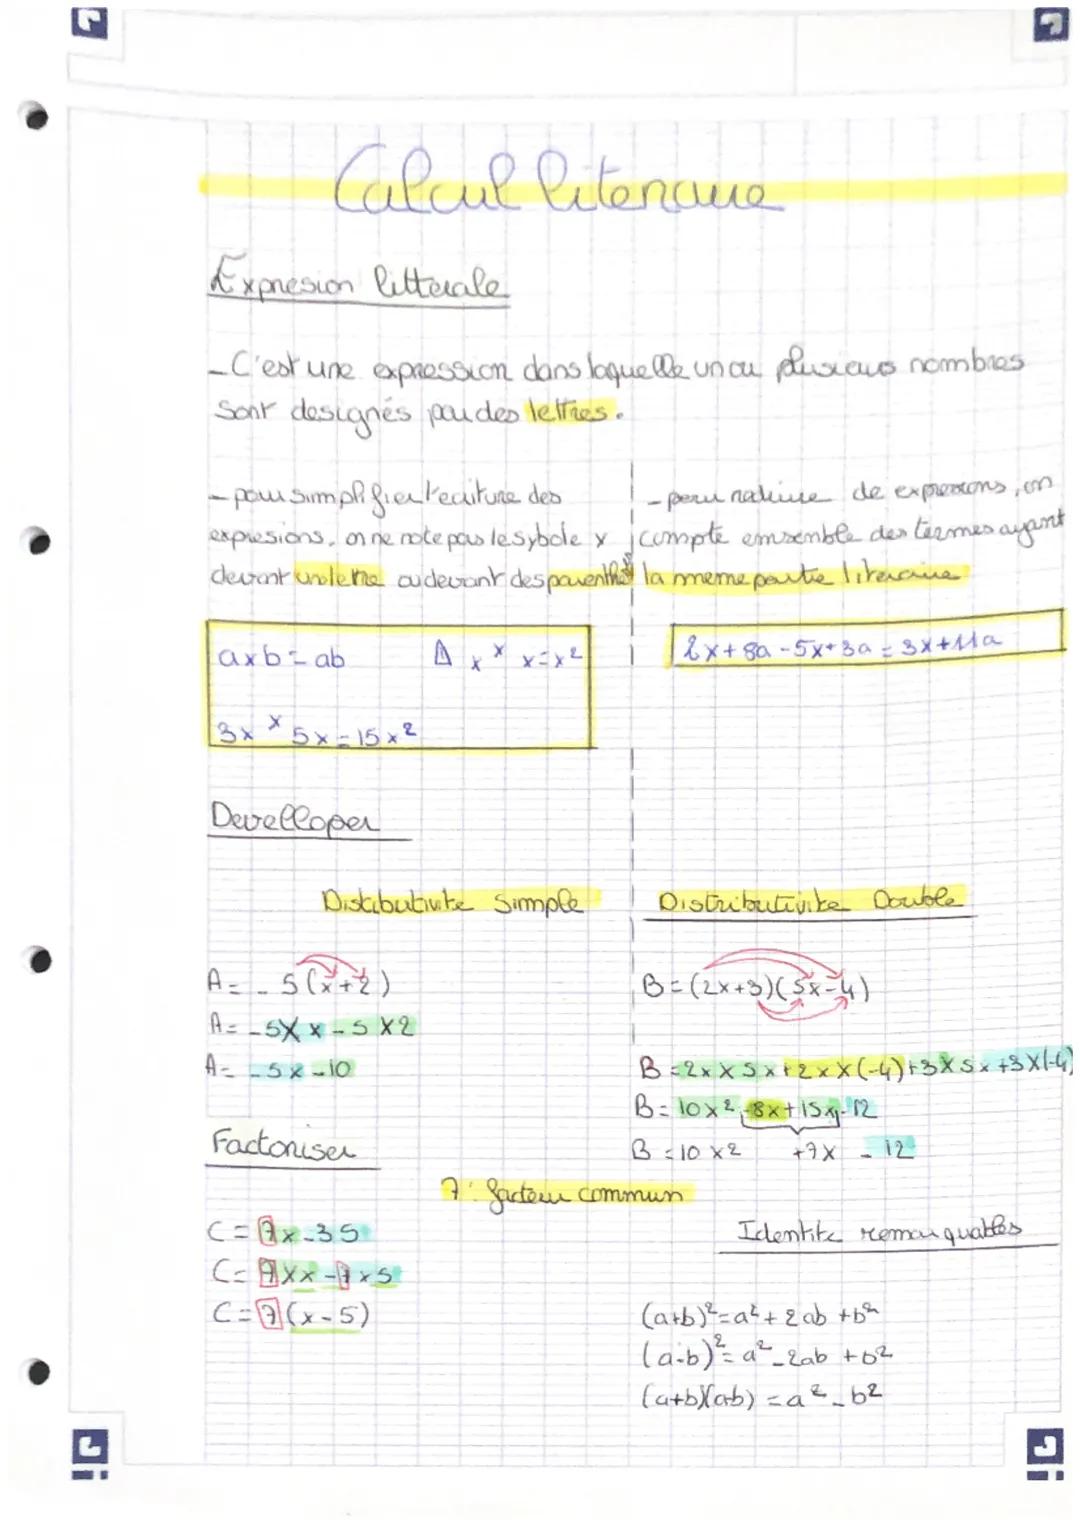 Calcul literaire
Expresion litterale
- C'est une expression dans laquelle un ou plusieurs nombres
sont designés par des lettres.
- pour simplifier l'ecriture des
expresions, on ne note pas le sybole x
devant une lettre ou devant des parenthèses
axb = ab
⚠ x × x = x²
3x × 5x = 15x²
- pour reduire de expressions, on
compte emsemble des termes ayant
la meme partie literaire
2x + 8a - 5x + 3a = 3x + 11a
Develloper
Distributivite Simple
A = - 5(x+2)
A = -5 X x - 5 X 2
A = -5x - 10
Distributivite Double
B = (2x+3)(5x-4)
B = 2x X 5x + 2x X (-4) + 3 X 5x + 3 X (-4)
B = 10x² - 8x + 15x - 12
B = 10x² +7x - 12
Factoriser
7 : facteur commun
C = 7x - 35
C = 7 X x - 7 x 5
C = 7 (x - 5)
Identite remarquables
(a+b)² = a² + 2ab + b²
(a-b)² = a² - 2ab + b²
(a+b)(a-b) = a² - b²